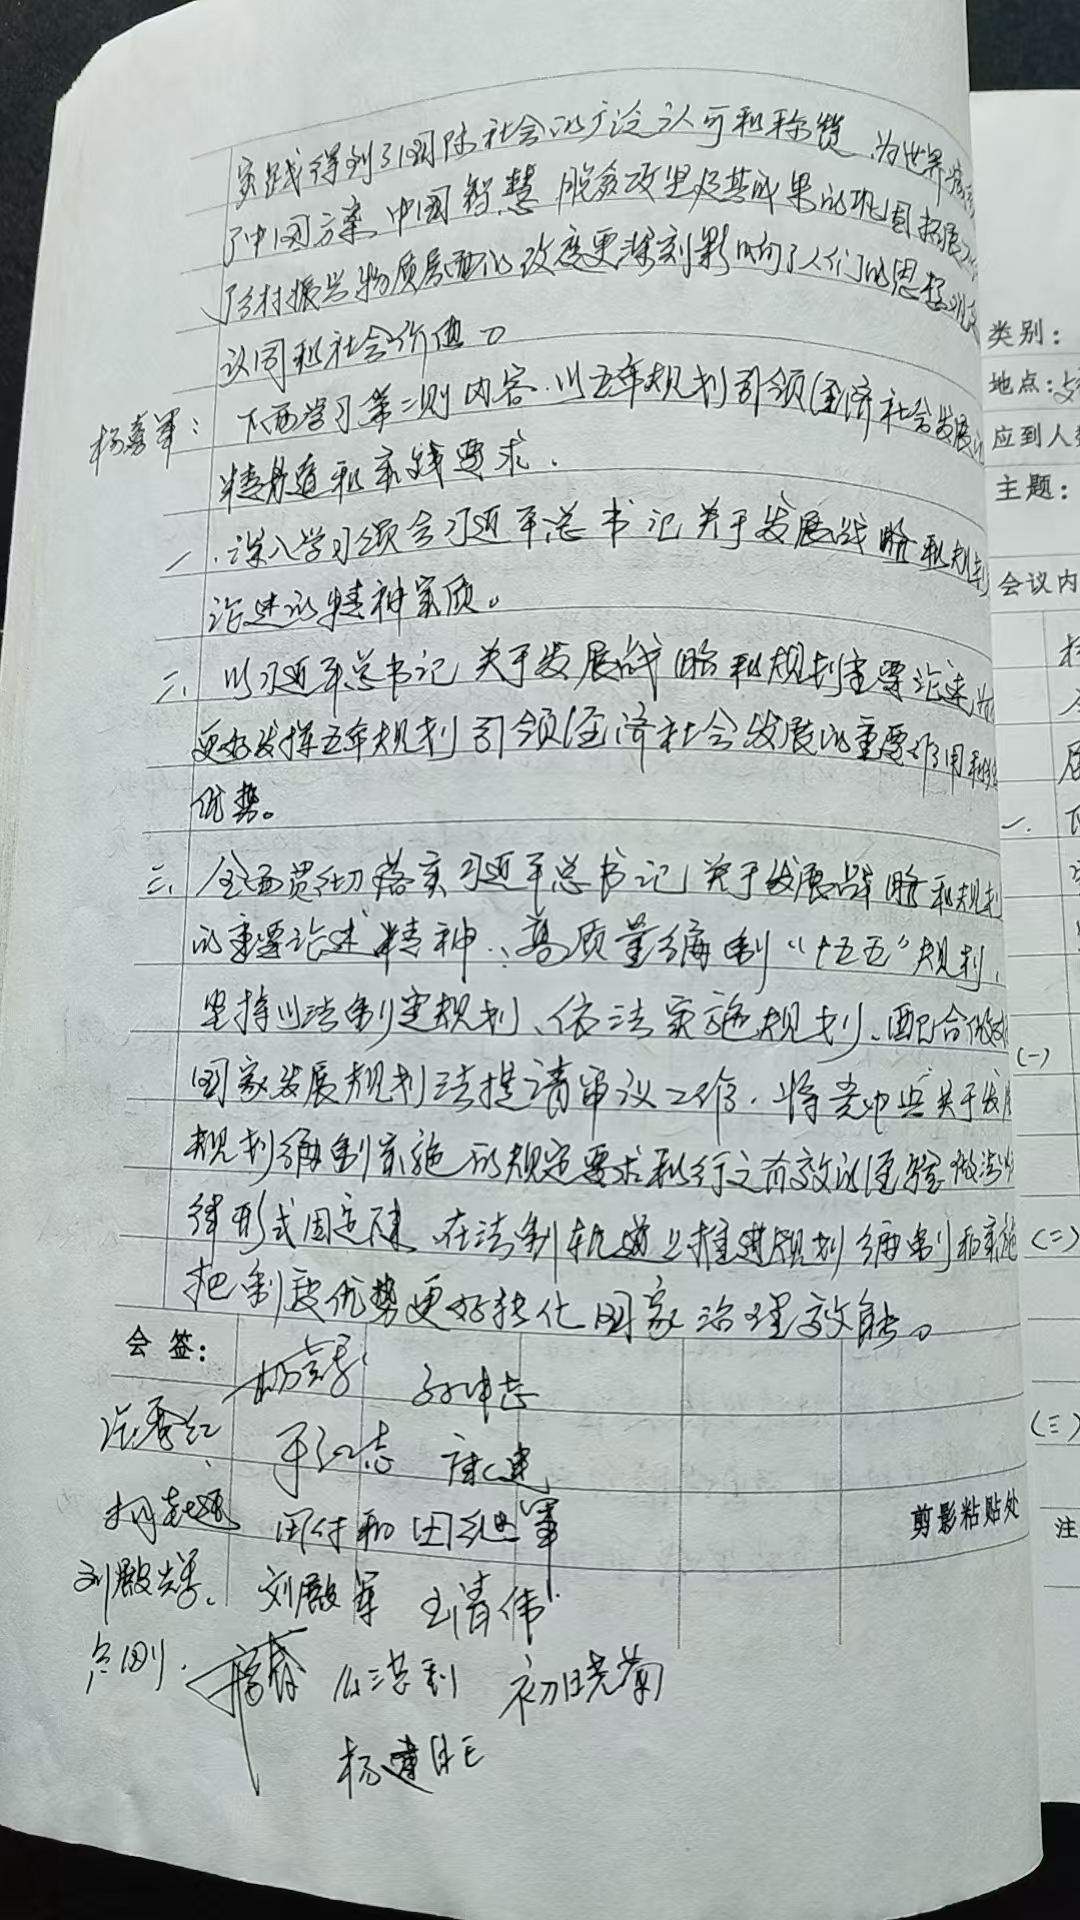 实践得到了国际社会的广泛认可和称赞、为世界
了中国方案、中国智慧 脱贫攻坚及其成果的巩固拓展
了乡村振兴物质层面的改变更深刻影响了人们的思想观
认同和社会价值。
类别：
地点：
杨喜军：下面学习第二则内容.以五年规划引领经济社会发展
应到人
精神 和实践要求.
主题：
一.深入学习领会习近平总书记关于发展战略和规划
会议内
论述的精神实质。
二、以习近平总书记关于发展战略和规划重要论述为
更好发挥五年规划引领经济社会发展的重要作用和
优势。
三、全面贯彻落实习近平总书记关于发展战略和规划
的重要论述精神、高质量编制“十五五”规划、
坚持以法制定规划、依法实施规划、配合做好
国家发展规划法提请审议工作.将党中央关于发展
规划编制实施的规定要求和行之有效的经验做法以
律形式固定 、在法制轨道上推进规划编制和实施
把制度优势更好转化国家治理效能。
(一)
(二)
(三)
会 签：
孙坤志
周付和 田继军
刘殿军 王清伟
初晓菊
杨建旺
剪影粘贴处
注